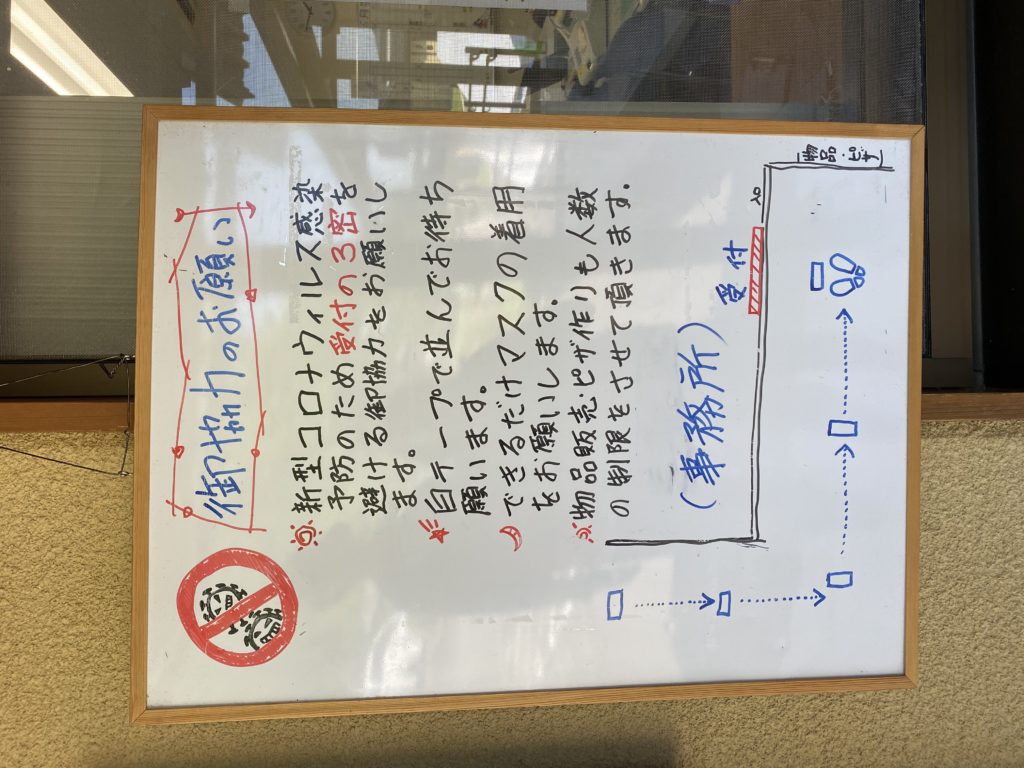 御協力のお願い
新型コロナウィルス感染
予防のため受付の3密を
避ける御協力をお願いし
ます。
白テープで並んでお待ち
願います。
できるだけマスクの着用
をお願いします。
物品販売・ピザ作りも人数
の制限をさせて頂きます。
(事務所)
受付
入口
物品・ピザ